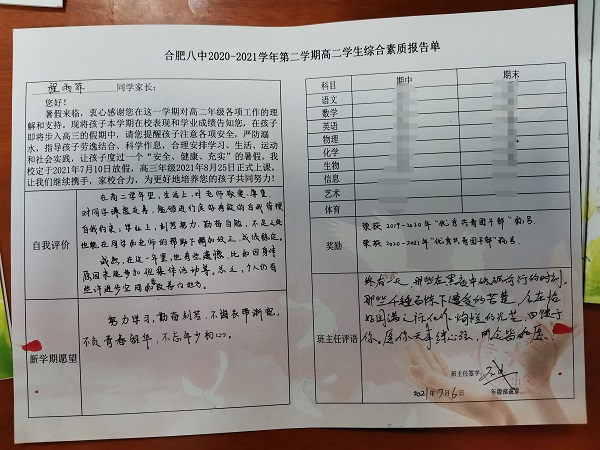 合肥八中2020-2021学年第二学期高二学生综合素质报告单
同学家长：
您好！
暑假来临，衷心感谢您在这一学期对高二年级各项工作的理解和支持，现将孩子本学期在校表现和学业成绩告知您，在孩子即将步入高三的假期中，请您提醒孩子注意各项安全，严防溺水，指导孩子劳逸结合、科学作息，合理安排学习、生活、运动和社会实践，让孩子度过一个“安全、健康、充实”的暑假。我校定于2021年7月10日放假，高三年级2021年8月25日正式上课。让我们继续携手，家校合力，为更好地培养您的孩子共同努力！
自我评价
在高二学年里，生活上，对老师敬爱、尊重，
对同学谦虚友善，能够进行良好有效的自我管理
自我约束；学业上，刻苦努力，勤奋自勉，不足之处
也能在同学和老师的帮助下改正，成绩稳定。
当然，在这一年里，也有些遗憾，比如因身体
原因未能参加很多体育活动等。总之，个人仍有
些许进步空间和改善的地方。
新学期愿望
努力学习，勤奋刻苦，不留衣带渐宽，
不负青春韶华，不忘年少初心。
科目 期中 期末
语文
数学
英语
物理
化学
生物
信息
艺术
体育
奖励
荣获2019-2020年“优秀共青团干部”称号
荣获2020-2021年“优秀共青团干部”称号
班主任评语
终有一天，那些在黑夜中砥砺前行的时刻，
那些千锤百炼下遭受的苦楚，会在恰
好圆满之际化作灼灼的光芒，回馈于
你。愿你天年
班主任签字：
2021年7月6日
年级部盖章